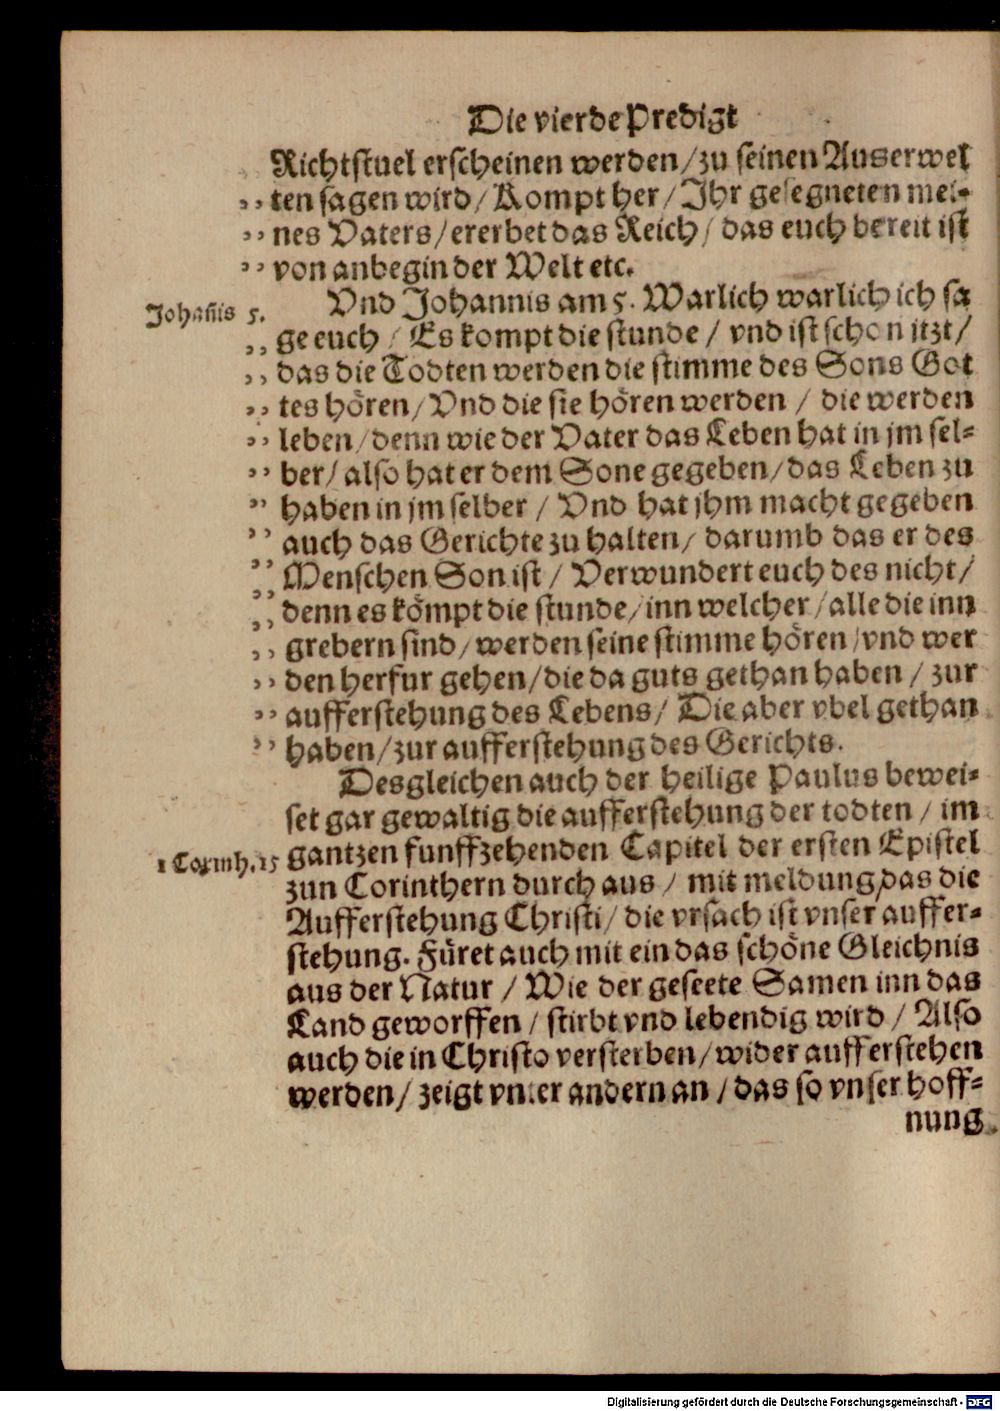 Die vierde Predigt
Richtstuel erscheinen werden/zu seinen Auserwel
,, ten sagen wird/ Kompt her/ Ihr gesegneten mei-
,, nes Vaters/ererbet das Reich/ das euch bereit ist
,, von anbegin der Welt etc.
Johañis 5.
Vnd Johannis am 5. Warlich warlich ich sa
,, ge euch / Es kompt die stunde / vnd ist schon itzt/
,, das die Todten werden die stimme des Sons Got
,, tes hören/ Vnd die sie hören werden / die werden
,, leben/denn wie der Vater das Leben hat in jm sel-
,, ber/ also hat er dem Sone gegeben/das Leben zu
,, haben in jm selber / Vnd hat jhm macht gegeben
,, auch das Gerichte zu halten/ darumb das er des
,, Menschen Son ist / Verwundert euch des nicht/
,, denn es kömpt die stunde/inn welcher/alle die inn
,, grebern sind/ werden seine stimme hören/vnd wer
,, den herfur gehen/die da guts gethan haben / zur
,, aufferstehung des Lebens/ Die aber vbel gethan
,, haben/zur aufferstehung des Gerichts.
Desgleichen auch der heilige Paulus bewei-
set gar gewaltig die aufferstehung der todten / im
1 Corinth. 15
gantzen funffzehenden Capitel der ersten Epistel
zun Corinthern durch aus / mit meldung/das die
Aufferstehung Christi/ die vrsach ist vnser auffer-
stehung. Füret auch mit ein das schöne Gleichnis
aus der Natur / Wie der geseete Samen inn das
Land geworffen / stirbt vnd lebendig wird / Also
auch die in Christo versterben/wider aufferstehen
werden/ zeigt vnter andern an /das so vnser hoff-
nung
Digitalisierung gefördert durch die Deutsche Forschungsgemeinschaft - DFG